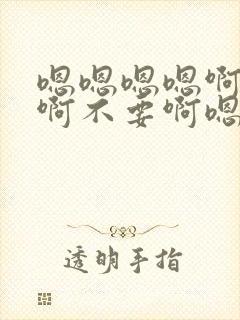 嗯嗯嗯嗯啊
啊不要啊嗯
透明手指